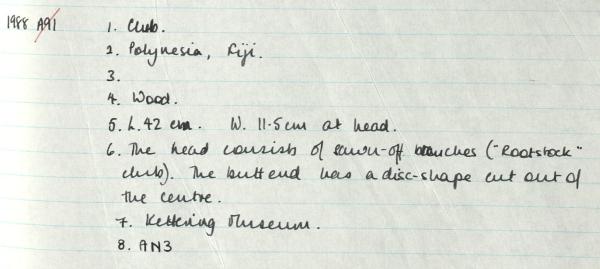 1988 A91 1. Club.
2. Polynesia, Fiji.
3.
4. Wood.
5. L. 42 cm. W. 11.5cm at head.
6. The head consists of sawn-off branches ("Rootstock"
club). The butt end has a disc-shape cut out of
the centre.
7. Kettering Museum.
8. AN3